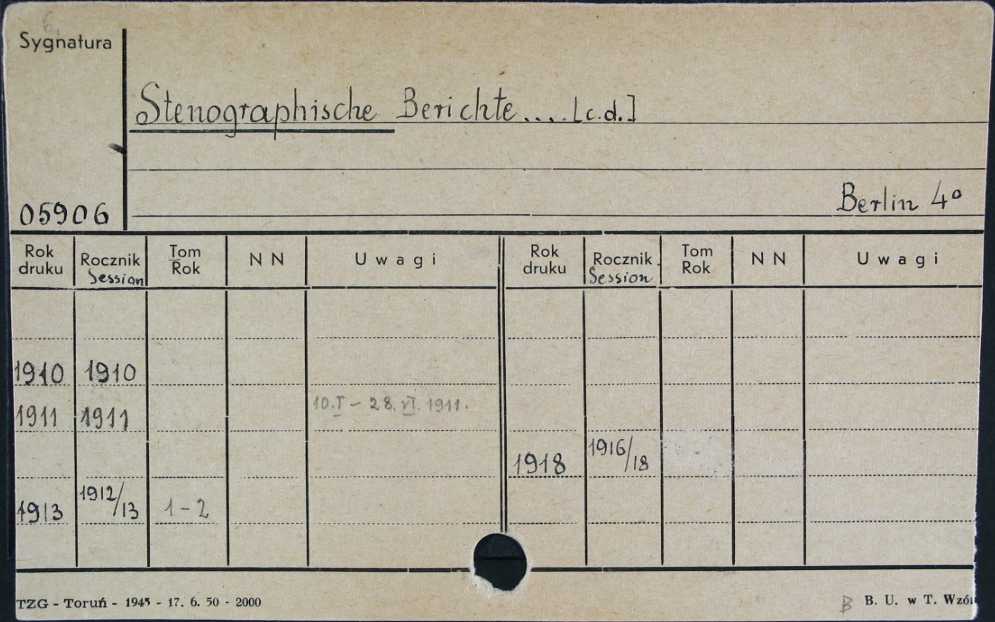 Sygnatura
Stenographische Berichte.... [c.d.]
Berlin 4°
05906
Rok druku Rocznik Session Tom Rok NN Uwagi Rok druku Rocznik. Session Tom Rok NN Uwagi
1910 1910
1911 1911 10.I – 28.VI. 1911.
1918 1916/18
1913 1912/13 1-2
TZG - Toruń - 1945 - 17. 6. 50 - 2000
B B. U. w T. Wzór